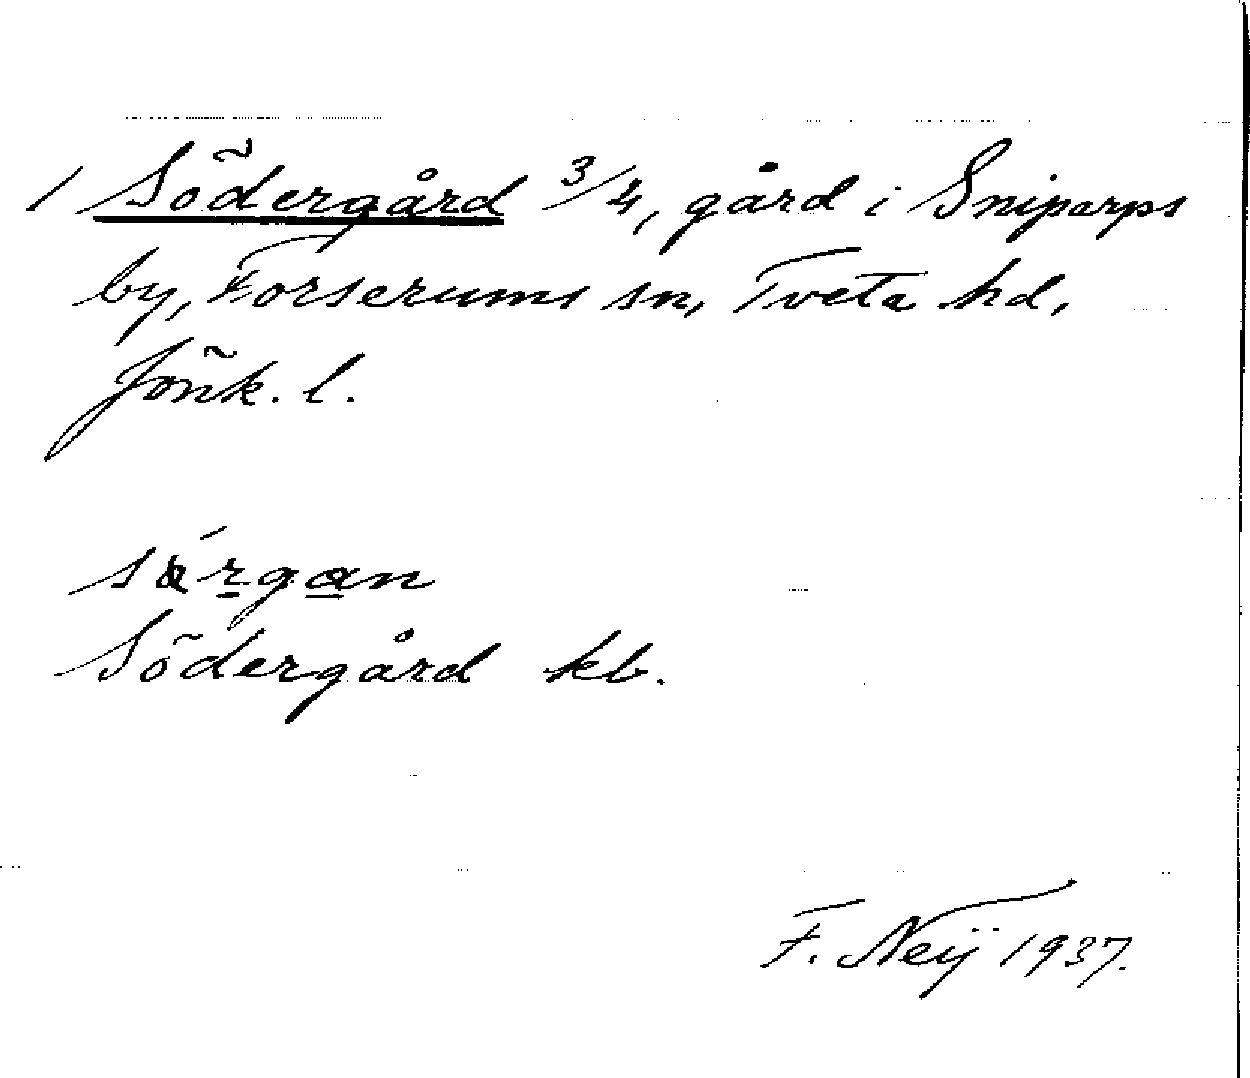 1 Södergård 3/4, gård i Sniparps
by, Forserums sn, Tveta hd,
Jönk. l.
Södergård kb.
F. Neij 1937.